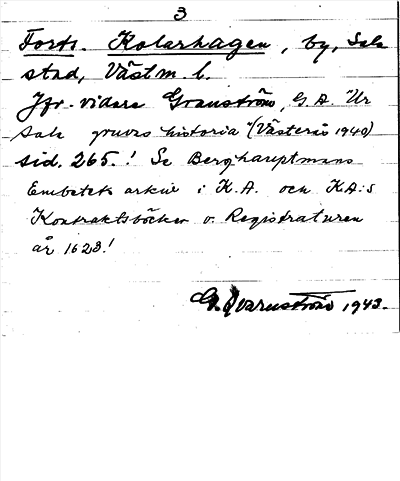 3
Forts. Kolarhagen, by, Sala
stad, Västm. l.
Jfr. vidare Granström, G. A. "Ur
Sala gruvas historia" (Västerås 1940)
sid. 265.! Se Berghauptmans
Embetets arkiv i K.A. och KA:s
Kontraktsböcker o. Registraturen
år 1628!
G. Qvarnström 1943.